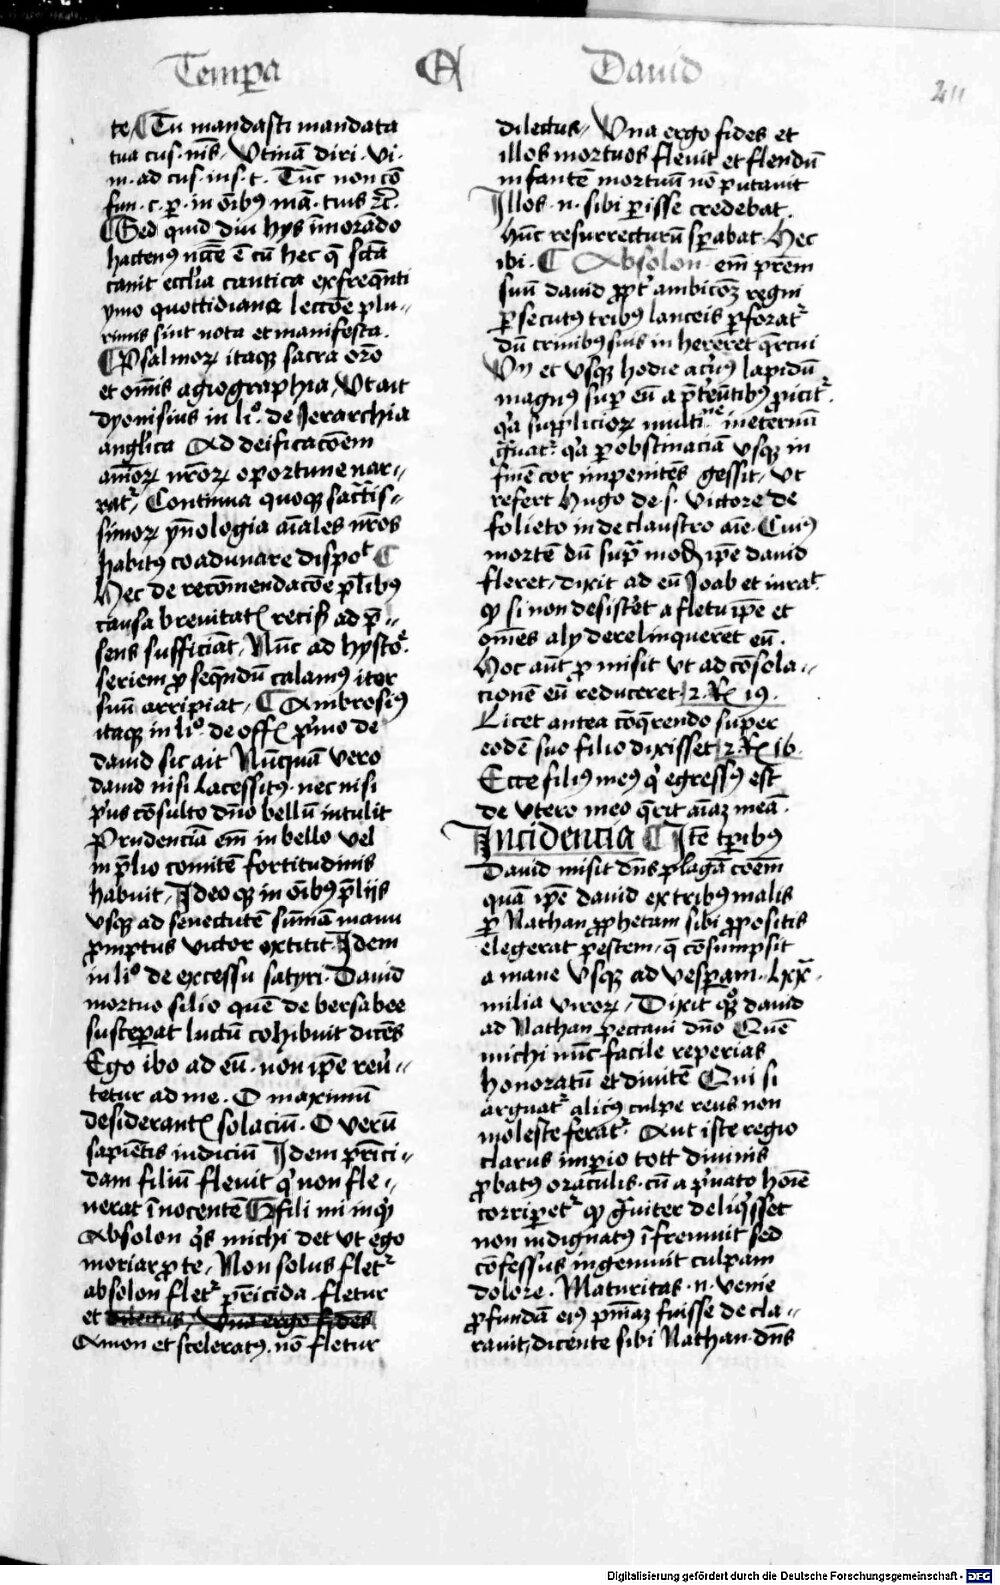 Temp̄a
A
Dauid
211
te / Tu mandasti mandata
tua cus. nīs. Vtinā diri. vi.
m. ad cus. ius. t. Tūc non cō
fun. c. ꝑ. in oībꝰ mā. tuis ⁊c̄.
Sed quid diu hys īmorādo
hactenꝰ nc̄tē ē cū hec q̄ sctā
canit eccl̓ia cantica exfreq̄nti
ymo quottidiana leccōe plu-
rimis sint nota et manifesta.
Psalmoꝝ itaqꝫ sacra orō
et oīnīs agiographia, Vt ait
dyonisius in li.° de Ierarchia
angl̓ica Ad deificacōem
aīmoꝝ nr̄oꝝ oportune nar-
rat᷑, Continua quoqꝫ sactīs-
simoꝝ yn̄ologia aīales nr̄os
habitꝰ coadunare dispoᵗ
Hec de recōmendacōe pl̓ibꝰ
causa breuitatꝭ recisꝭ ad p̄-
sens sufficiāt, Nūc ad hysto᷑.
seriem ꝓseq̄ndū calamꝰ iter
suū arripiat, Ambrosiꝰ
itaqꝫ in li.° de offꝭ p̓mo de
dauid sic ait Nūcquā vero
dauid nisi lacessitꝰ. nec nisi
p̓us cōsulto dn̄o bellū intulit
Prudenciā em̄ in bello vel
in p̄lio comitē fortitudinis
habuit, Ideo qꝫ in oībꝰ p̄lijs
vsqꝫ ad senectutē sūmā manu
ꝓmptus victor extitit. Idem
in li.° de excessu satyri. Dauid
mortuo filio quē de bersabee
susceꝑat luctū cohibuit dicēs
Ego ibo ad eū. non ip̄e reū-
tetur ad me. O maximū
desiderantꝭ solaciū. O verū
sapiētis iudiciū Idem p̄rici-
dam filiū fleuit q̓ non fle-
uerat īnocentē fili mi inq̓
Absolon q̓s michi det vt ego
moriar ꝓ te, Non solus flet᷑
absolon flet᷑ p̄ricida. fletur
et dilectus, Vna ergo fides
Amon et sceleratꝰ. nō fletur
dilectus, Vna ergo fides et
illos mortuos fleuit et flendū
infantē mortuū nō putauit
Illos. n. sibi ꝑisse credebat.
hūc resurrecturū sꝑabat. Hec
ibi. Absolon em̄ pr̄em
suū dauid ꝓpt᷑ ambicōꝫ regni
ꝑsecutꝰ tribꝰ lanceis ꝑforat᷑
dū crinibꝰ suis inhereret q̄rcui
et vsqꝫ hodie acūꝰ lapidū
magnꝰ suꝑ eū a p̄t̓eūtibꝰ ꝓicit᷑.
q̓a supplicioꝝ multiᵗᵘᵈⁱⁿᵉ in et̓nū
g̓uat᷑. q̓a ꝑ obstinaciā vsqꝫ in
finē cor inpenitēs gessit, Vt
refert Hugo de. s. victore de
folieto in de claustro aīe. Cuiꝰ
mortē dū supͣ modū ip̄e dauid
fleret, dixit ad eū Ioab et iurat᷑
qͦ si non desist̓et a fletu ip̄e et
om̄es aly derelinquerēt eū.
Hoc aūt ꝓmisit vt ad cōsola-
cionē eū reduceret 2. Rꝭ 19.
Licet antea cōq̄rendo super
eodē suo filio dixisset 2. Rꝭ 16.
Ecce filiꝰ meꝰ q̓ egressꝰ est
de vtero meo q̄rit aīaꝫ meā.
Incidencia Itē tꝑibꝰ
Dauid misit dn̄s plagā cōem̄
quā ip̄e dauid ex tribꝰ malis
ꝑ Nathan ꝓphetam sibi ꝓpositis
elegerat pestem. q̄ cōsumpsit
a mane vsqꝫ ad vesꝑam. lxxͣ.
milia viroꝝ, Dixit qꝫ° dauid
ad Nathan peccaui dn̄o Quē
michi nūc facile reperias
honoratū et diuitē Qui si
arguat᷑ alicꝰ culpe reus non
moleste ferat᷑. Aut iste regio
clarus imꝑio tott diuinis
ꝓbatꝰ oraculis. cū a p̓uato hoīe
corriꝑet᷑ qͦ g̓uiter deliq̓sset
non indignatꝰ īfremuit sed
cōfessus ingemuit culpam
dolore. Maturitas. n. venie
ꝓfundā eiꝰ pn̄iaꝫ fuisse decla-
rauit, dicente sibi Nathan. dn̄s
Digitalisierung gefördert durch die Deutsche Forschungsgemeinschaft - DFG